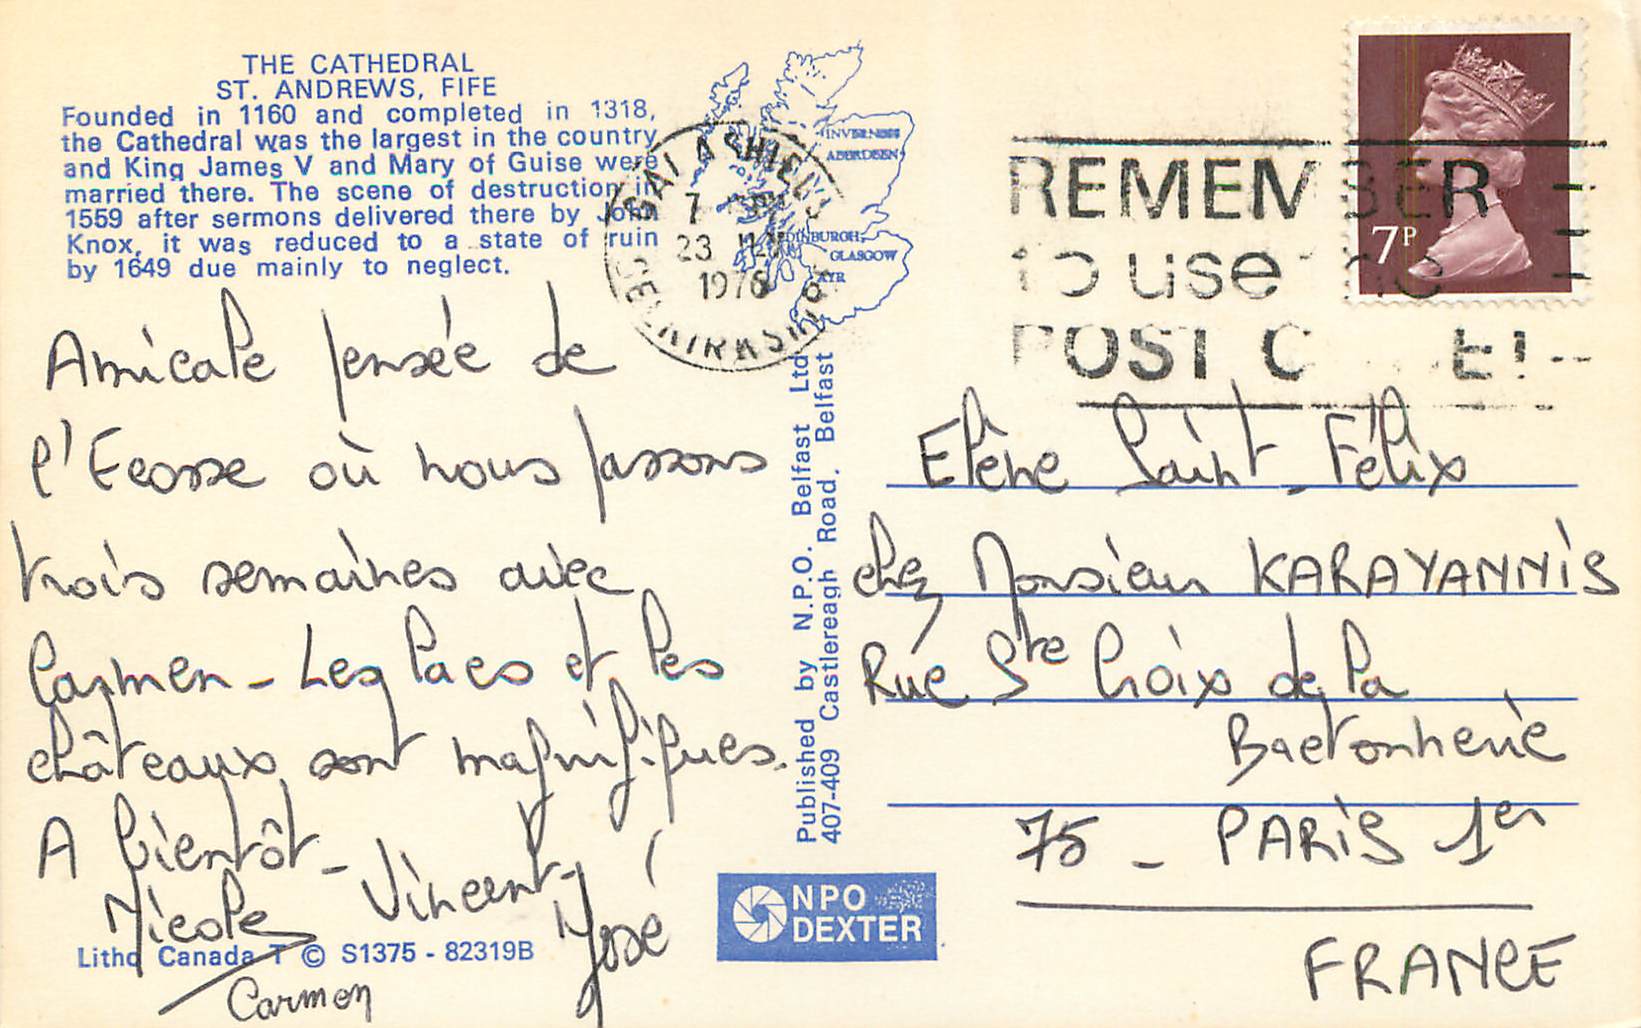 THE CATHEDRAL
ST. ANDREWS, FIFE
Founded in 1160 and completed in 1318,
the Cathedral was the largest in the country
and King James V and Mary of Guise were
married there. The scene of destruction in
1559 after sermons delivered there by John
Knox, it was reduced to a state of ruin
by 1649 due mainly to neglect.
INVERNESS
ABERDEEN
EDINBURGH
GLASGOW
AYR
GALASHIELS
7
23
1976
SELKIRKSHIRE
REMEMBER
to use the
POST C E!
7P
Amicale pensée de
l'Ecosse où nous passons
trois semaines avec
Carmen - Les lacs et les
châteaux sont magnifiques.
A bientôt -
Nicole Vincent José
Carmen
Elène Saint-Félix
chez Monsieur KARAYANNIS
Rue Ste Croix de la
Bretonnerie
75 - PARIS 1er
FRANCE
Published by N.P.O. Belfast Ltd
407-409 Castlereagh Road, Belfast
Litho Canada T © S1375 - 82319B
NPO
DEXTER